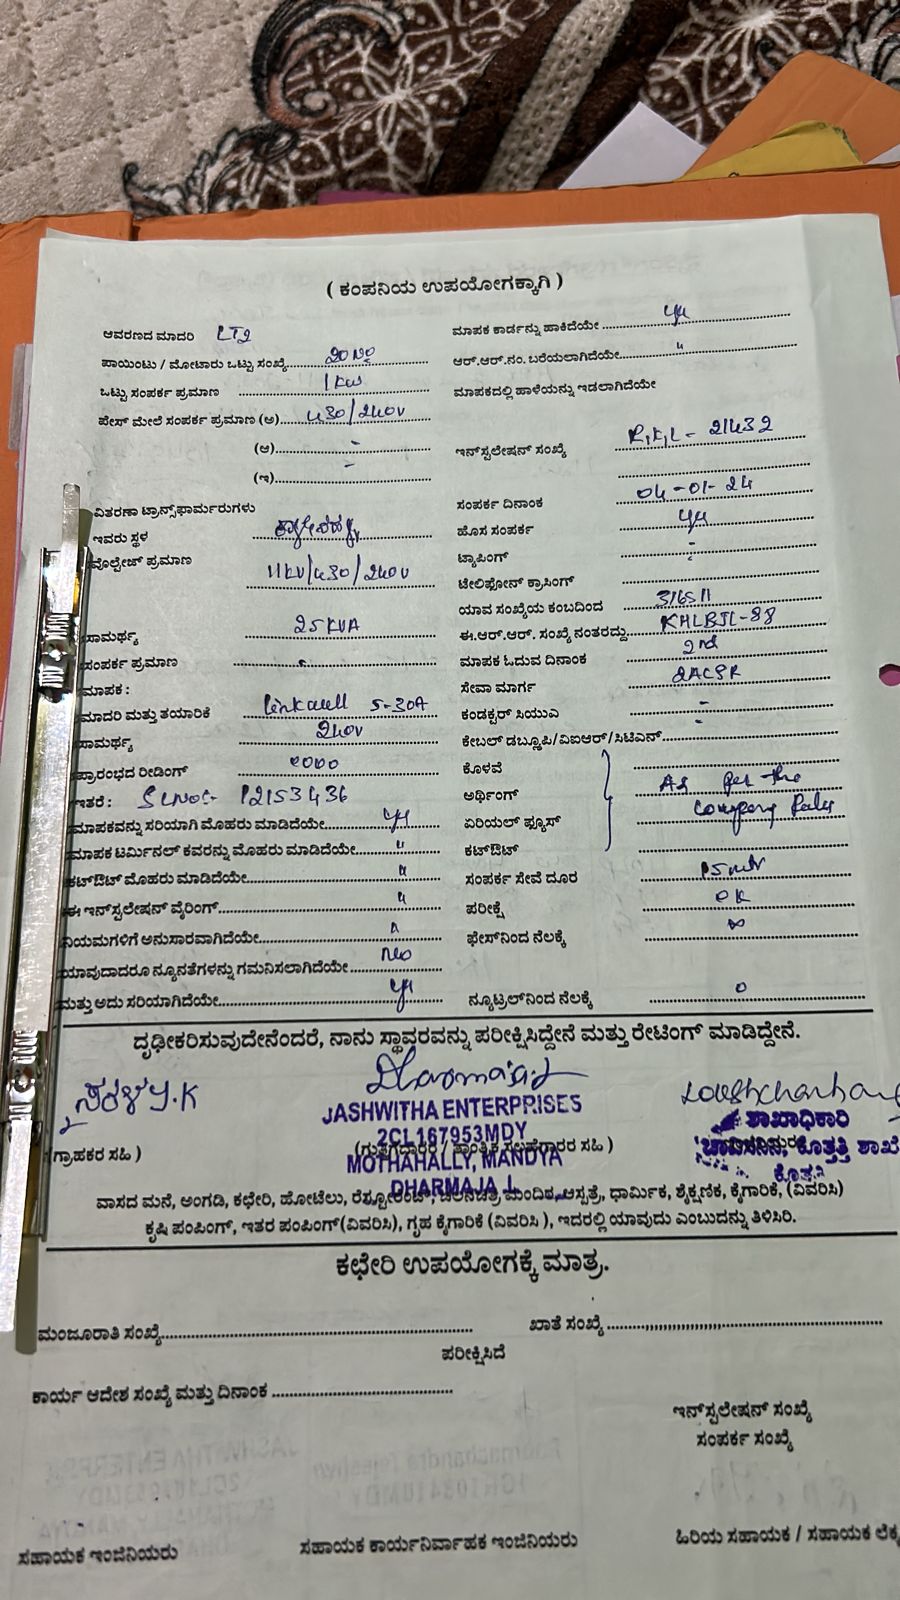 ( ಕಂಪನಿಯ ಉಪಯೋಗಕ್ಕಾಗಿ )
ಆವರಣದ ಮಾದರಿ LT2
ಪಾಯಿಂಟು / ಮೋಟಾರು ಒಟ್ಟು ಸಂಖ್ಯೆ
ಒಟ್ಟು ಸಂಪರ್ಕ ಪ್ರಮಾಣ 1 KW
ಪೇಸ್ ಮೇಲೆ ಸಂಪರ್ಕ ಪ್ರಮಾಣ (ಅ) 430/240V
(ಆ) -
(ಇ) -
ವಿತರಣಾ ಟ್ರಾನ್ಸ್‌ಫಾರ್ಮರುಗಳು
ಇವರು ಸ್ಥಳ
ವೊಲ್ಟೇಜ್ ಪ್ರಮಾಣ 11KV/430/240V
ಸಾಮರ್ಥ್ಯ 25KVA
ಸಂಪರ್ಕ ಪ್ರಮಾಣ
ಮಾಪಕ :
ಮಾದರಿ ಮತ್ತು ತಯಾರಿಕೆ Linkwell 5-30A
ಸಾಮರ್ಥ್ಯ 240V
ಪ್ರಾರಂಭದ ರೀಡಿಂಗ್
ಇತರೆ : SLNO:- P2153436
ಮಾಪಕವನ್ನು ಸರಿಯಾಗಿ ಮೊಹರು ಮಾಡಿದೆಯೇ yes
ಮಾಪಕ ಟರ್ಮಿನಲ್ ಕವರನ್ನು ಮೊಹರು ಮಾಡಿದೆಯೇ "
ಕಟ್‌ಔಟ್ ಮೊಹರು ಮಾಡಿದೆಯೇ "
ಈ ಇನ್‌ಸ್ಪಲೇಷನ್ ವೈರಿಂಗ್ "
ನಿಯಮಗಳಿಗೆ ಅನುಸಾರವಾಗಿದೆಯೇ "
ಯಾವುದಾದರೂ ನ್ಯೂನತೆಗಳನ್ನು ಗಮನಿಸಲಾಗಿದೆಯೇ no
ಮತ್ತು ಅದು ಸರಿಯಾಗಿದೆಯೇ yes
ಮಾಪಕ ಕಾರ್ಡನ್ನು ಹಾಕಿದೆಯೇ yes
ಆರ್.ಆರ್.ನಂ. ಬರೆಯಲಾಗಿದೆಯೇ "
ಮಾಪಕದಲ್ಲಿ ಹಾಳೆಯನ್ನು ಇಡಲಾಗಿದೆಯೇ
ಇನ್‌ಸ್ಪಲೇಷನ್ ಸಂಖ್ಯೆ R,K,L- 21432
ಸಂಪರ್ಕ ದಿನಾಂಕ 04-01-24
ಹೊಸ ಸಂಪರ್ಕ yes
ಟ್ಯಾಪಿಂಗ್ -
ಟೇಲಿಫೋನ್ ಕ್ರಾಸಿಂಗ್ -
ಯಾವ ಸಂಖ್ಯೆಯ ಕಂಬದಿಂದ
ಈ.ಆರ್.ಆರ್. ಸಂಖ್ಯೆ ನಂತರದ್ದು KHLBJL-88
ಮಾಪಕ ಓದುವ ದಿನಾಂಕ 2nd
ಸೇವಾ ಮಾರ್ಗ 2ACSR
ಕಂಡಕ್ಟರ್ ಸಿಯುಎ -
ಕೇಬಲ್ ಡಬ್ಲೂಪಿ/ವಿಐಆರ್/ಸಿಟಿಎನ್ -
ಕೊಳವೆ
ಅರ್ಥಿಂಗ್ As per the
ಏರಿಯಲ್ ಫ್ಯೂಸ್ company Rules
ಕಟ್‌ಔಟ್
ಸಂಪರ್ಕ ಸೇವೆ ದೂರ 15 mtr
ಪರೀಕ್ಷೆ OK
ಫೇಸ್‌ನಿಂದ ನೆಲಕ್ಕೆ ∞
ನ್ಯೂಟ್ರಲ್‌ನಿಂದ ನೆಲಕ್ಕೆ 0
ದೃಢೀಕರಿಸುವುದೇನೆಂದರೆ, ನಾನು ಸ್ಥಾವರವನ್ನು ಪರೀಕ್ಷಿಸಿದ್ದೇನೆ ಮತ್ತು ರೇಟಿಂಗ್ ಮಾಡಿದ್ದೇನೆ.
ಸರಳ Y.K
(ಗ್ರಾಹಕರ ಸಹಿ )
JASHWITHA ENTERPRISES
2CL167953MDY
(ಗುತ್ತಿಗೆದಾರರ / ತಾಂತ್ರಿಕ ಸಲಹೆಗಾರರ ಸಹಿ )
MOTHAHALLY, MANDYA
DHARMAJA L
ಶಾಖಾಧಿಕಾರಿ
ಚಾವಿಸನಿನಿ, ಕೊತ್ತತ್ತಿ ಶಾಖೆ
ಕೊತ್ತತ್ತಿ
ವಾಸದ ಮನೆ, ಅಂಗಡಿ, ಕಛೇರಿ, ಹೋಟೆಲು, ರೆಸ್ಟೋರೆಂಟ್, ಚಲನಚಿತ್ರ ಮಂದಿರ, ಆಸ್ಪತ್ರೆ, ಧಾರ್ಮಿಕ, ಶೈಕ್ಷಣಿಕ, ಕೈಗಾರಿಕೆ, (ವಿವರಿಸಿ)
ಕೃಷಿ ಪಂಪಿಂಗ್, ಇತರ ಪಂಪಿಂಗ್(ವಿವರಿಸಿ), ಗೃಹ ಕೈಗಾರಿಕೆ (ವಿವರಿಸಿ ), ಇದರಲ್ಲಿ ಯಾವುದು ಎಂಬುದನ್ನು ತಿಳಿಸಿರಿ.
ಕಛೇರಿ ಉಪಯೋಗಕ್ಕೆ ಮಾತ್ರ.
ಮಂಜೂರಾತಿ ಸಂಖ್ಯೆ
ಖಾತೆ ಸಂಖ್ಯೆ
ಪರೀಕ್ಷಿಸಿದೆ
ಕಾರ್ಯ ಆದೇಶ ಸಂಖ್ಯೆ ಮತ್ತು ದಿನಾಂಕ
ಇನ್‌ಸ್ಪಲೇಷನ್ ಸಂಖ್ಯೆ
ಸಂಪರ್ಕ ಸಂಖ್ಯೆ
ಸಹಾಯಕ ಇಂಜಿನಿಯರು
ಸಹಾಯಕ ಕಾರ್ಯನಿರ್ವಾಹಕ ಇಂಜಿನಿಯರು
ಹಿರಿಯ ಸಹಾಯಕ / ಸಹಾಯಕ ಲೆಕ್ಕ